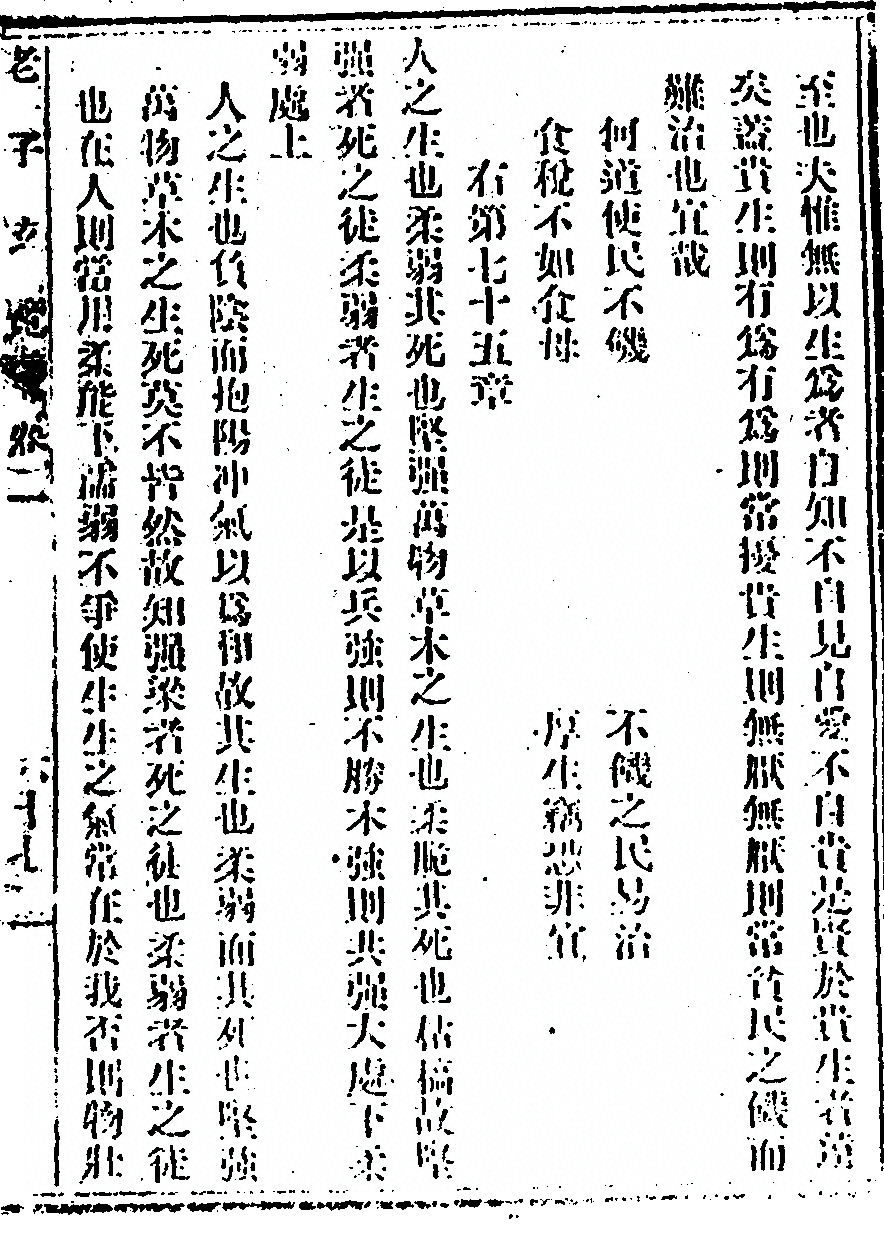 至也夫惟無以生爲者自知不自見自愛不自貴是賢於貴生者遠
矣蓋貴生則有爲有爲則常擾貴生則無厭無厭則常貪民之饑而
難治也宜哉
何道使民不饑 不饑之民易治
食稅不如食母 厚生竊恐非宜
右第七十五章
人之生也柔弱其死也堅强萬物草木之生也柔脆其死也枯槁故堅
强者死之徒柔弱者生之徒是以兵強則不勝木強則共强大處下柔
弱處上
人之生也負陰而抱陽冲氣以爲和故其生也柔弱而其死也堅強
萬物草木之生死莫不皆然故知强梁者死之徒也柔弱者生之徒
也在人則當用柔能下濡弱不爭使生生之氣常在於我否則物壯
老子玄 卷二